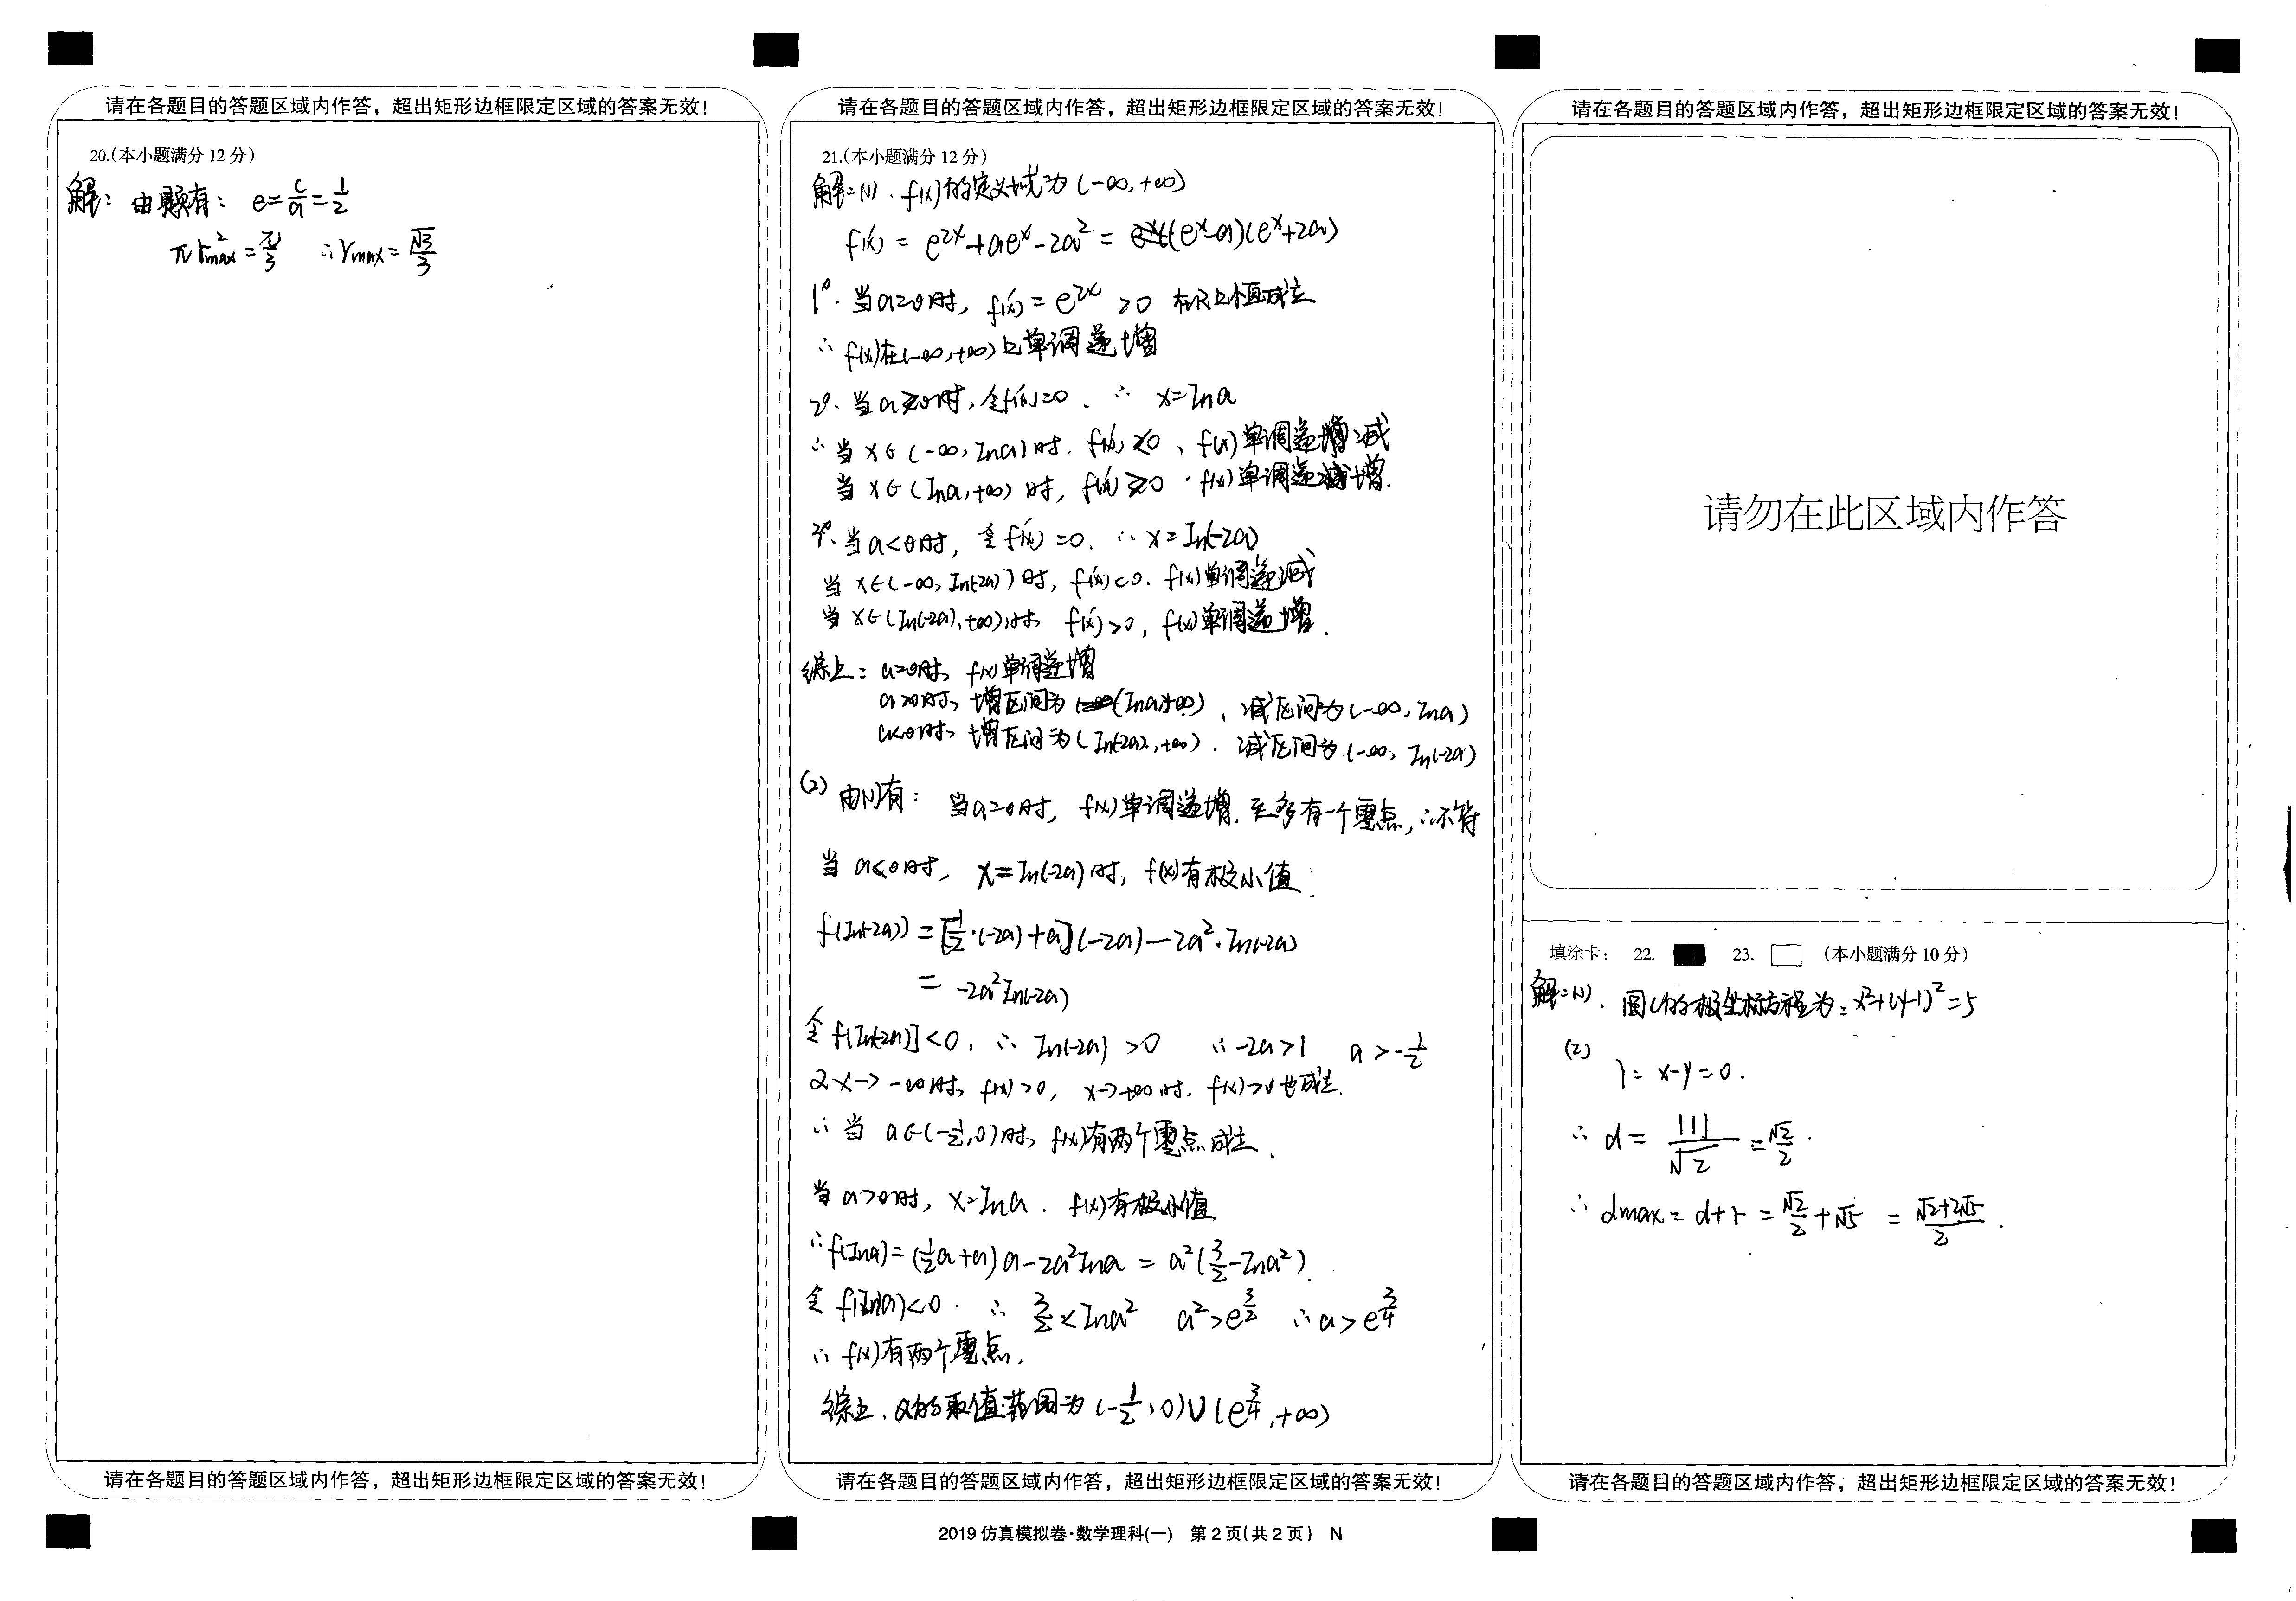 请在各题目的答题区域内作答，超出矩形边框限定区域的答案无效！
20.（本小题满分 12 分）
解：由题有：e=c/a=1/2
πr²max=π/3 ∴rmax=√3/3
请在各题目的答题区域内作答，超出矩形边框限定区域的答案无效！
请在各题目的答题区域内作答，超出矩形边框限定区域的答案无效！
21.（本小题满分 12 分）
解：(1). f(x)的定义域为(-∞,+∞)
f'(x) = e^{2x}+ae^x-2a² = (e^x-a)(e^x+2a)
1°. 当a=0时, f'(x) = e^{2x} >0 在R上恒成立
∴ f(x)在(-∞,+∞)上单调递增
2°. 当a>0时, 令f'(x)=0. ∴ x=lna
∴当x∈(-∞,lna)时, f'(x)<0, f(x)单调递减
当x∈(lna,+∞)时, f'(x)>0. f(x)单调递增.
3°. 当a<0时, 令f'(x)=0. ∴x=ln(-2a)
当x∈(-∞,ln(-2a))时, f'(x)<0. f(x)单调递减
当x∈(ln(-2a),+∞)时, f'(x)>0, f(x)单调递增.
综上：a=0时, f(x)单调递增
a>0时, 增区间为(lna,+∞), 减区间为(-∞,lna)
a<0时, 增区间为(ln(-2a),+∞). 减区间为(-∞, ln(-2a)
(2) 由(1)有：当a=0时, f(x)单调递增. 至多有一个零点, ∴不符
当a<0时, x=ln(-2a)时, f(x)有极小值.
f(ln(-2a))=[1/2·(-2a)+a](-2a)-2a²·ln(-2a)
= -2a²ln(-2a)
令f[ln(-2a)]<0, ∴ ln(-2a)>0 ∴-2a>1 a>-1/2
又x→-∞时, f(x)>0, x→+∞时, f(x)>0也成立.
∴当 a∈(-1/2,0)时, f(x)有两个零点成立.
当a>0时, x=lna. f(x)有极小值
∴f(lna)=(1/2a+a)a-2a²lna = a²(3/2-lna²).
令f(lna)<0. ∴ 3/2<lna² a²>e^{3/2} ∴a>e^{3/4}
∴ f(x)有两个零点.
综上, a的取值范围为(-1/2,0)∪(e^{3/4},+∞)
请在各题目的答题区域内作答，超出矩形边框限定区域的答案无效！
请在各题目的答题区域内作答，超出矩形边框限定区域的答案无效！
请勿在此区域内作答
填涂卡： 22. 23. （本小题满分 10 分）
解：(1). 圆C的极坐标方程为：x²+(y-1)²=5
(2) l: x-y=0.
∴ d=|1|/√2=√2/2.
∴ dmax=d+r=√2/2+√5 =(√2+2√5)/2.
请在各题目的答题区域内作答，超出矩形边框限定区域的答案无效！
2019 仿真模拟卷·数学理科(一) 第 2 页(共 2 页) N